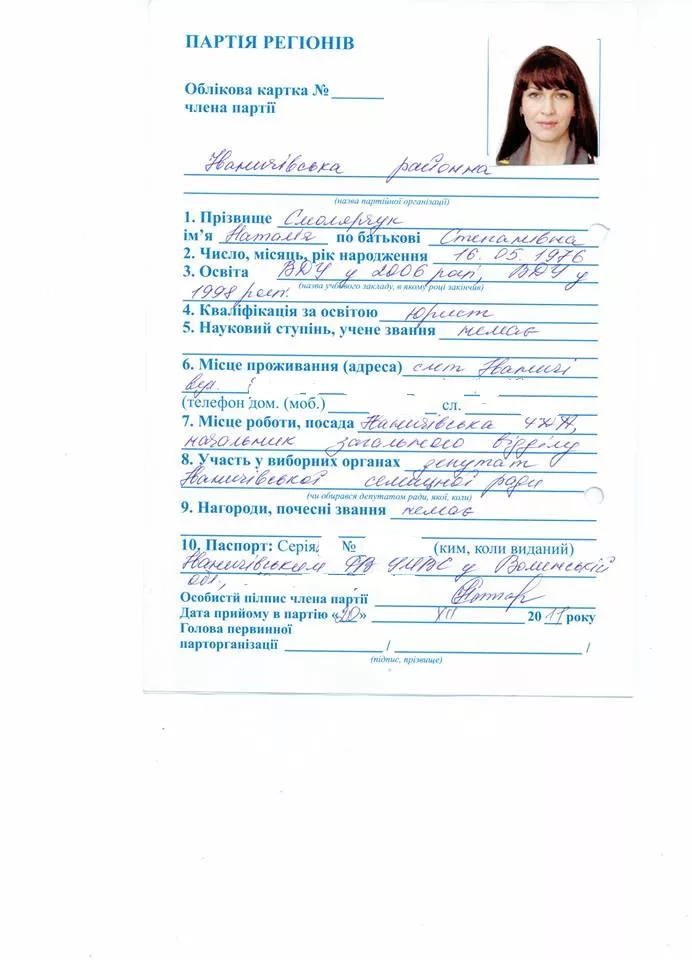 ПАРТІЯ РЕГІОНІВ
Облікова картка № ______
члена партії
Іваничівська районна
(назва партійної організації)
1. Прізвище Смолярчук
ім’я Наталія по батькові Степанівна
2. Число, місяць, рік народження 16. 05. 1976
3. Освіта ВДУ у 2006 році, ВДУ у
(назва учбового закладу, в якому році закінчив)
1998 році.
4. Кваліфікація за освітою юрист
5. Науковий ступінь, учене звання немає
6. Місце проживання (адреса) смт Іваничі
вул.
(телефон дом. (моб.) сл.
7. Місце роботи, посада Іваничівська
начальник загального відділу
8. Участь у виборних органах депутат
Іваничівської селищної ради
(чи обирався депутатом ради, якої, коли)
9. Нагороди, почесні звання немає
10. Паспорт: Серія № (ким, коли виданий)
Іваничівським УМВС у Волинській
обл.,
Особистй пілпис члена партії
Дата прийому в партію «20» XII 2011 року
Голова первинної
парторганізації / /
(підпис, прізвище)